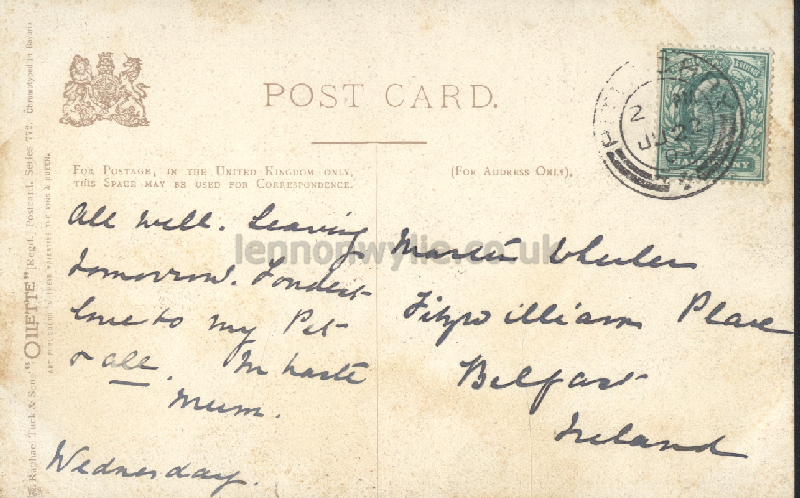 POST CARD.
FOR POSTAGE, IN THE UNITED KINGDOM ONLY,
THIS SPACE MAY BE USED FOR CORRESPONDENCE.
(FOR ADDRESS ONLY).
All well. Leaving
tomorrow. Fondest
love to my Pet
& all. In haste
Mum.
Wednesday.
Master Wheeler
Fitzwilliam Place
Belfast
Ireland
lennonwylie.co.uk
Raphael Tuck & Sons' "OILETTE" [Regd.] Postcard. Series 772.
ART PUBLISHERS TO THEIR MAJESTIES THE KING & QUEEN.
Chromotyped in Bavaria